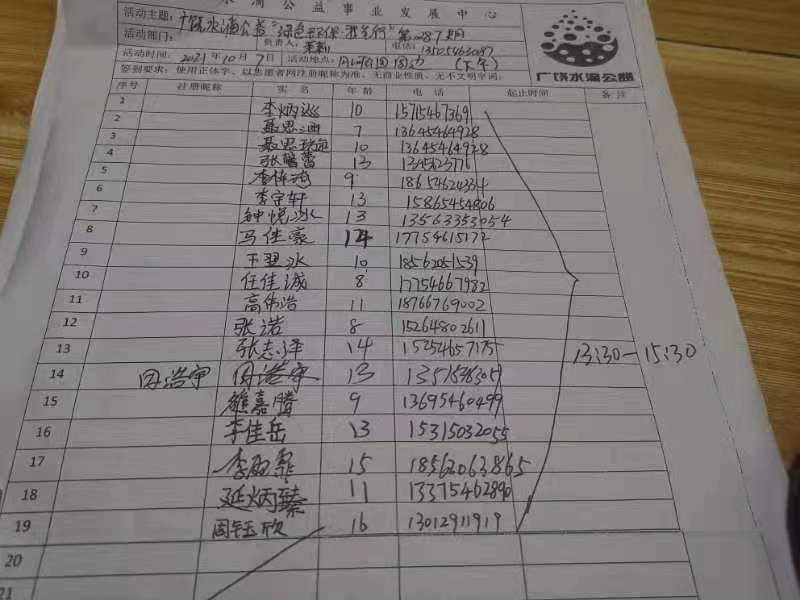 水滴公益事业发展中心
活动主题: 广饶水滴公益"绿色环保 我先行"第287期
活动部门: 负责人: 电话: 13505463087
活动时间: 2021年10月7日 活动地点: 周边 (下午)
签到要求: 使用正体字, 以志愿者网注册昵称为准, 无商业性质, 无不文明字词;
广饶水滴公益
序号 注册昵称 实名 年龄 电话 起止时间 备注
1 李炳 10 15715467369
2 聂思 7 13645464928
3 聂思 10 13645464928
4 张 13
5 9 18654624334
6 李宇轩 13 15865454806
7 钟悦冰 13 13563353054
8 马佳豪 14 17754615172
9 王翌冰 10 18562051539
10 任佳诚 8 17754667982
11 高伟浩 11 18766769002
12 张诺 8 15264802611
13 张志泽 14 15254657175
13:30-15:30
14 田浩宇 田浩宇 13
15 嘉腾 9 13695460499
16 李佳岳 13 15315032055
17 李 15 18562063865
18 延炳臻 11 13375462890
19 周钰欣 16 13012911919
20
21